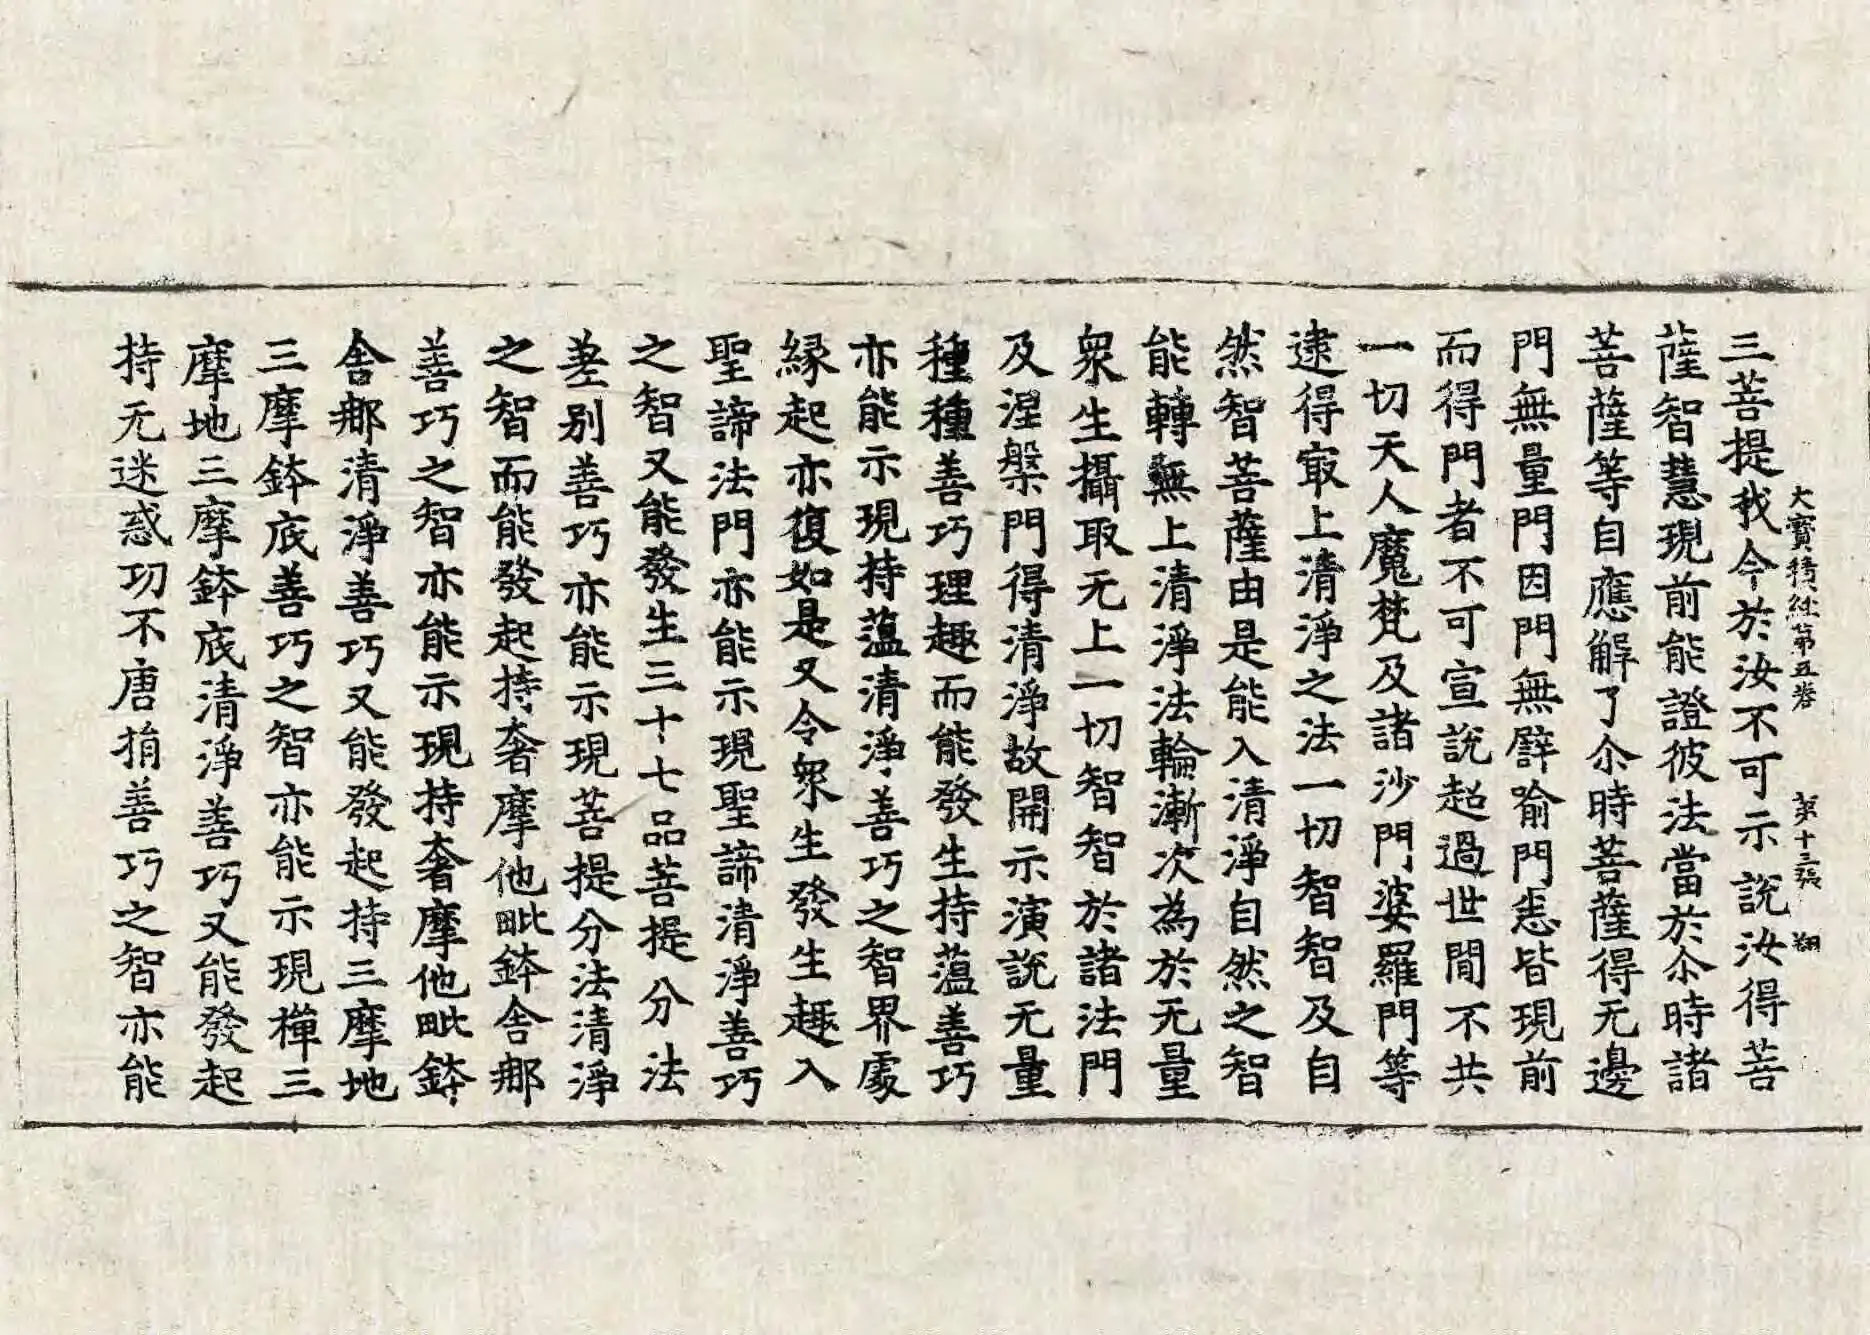 大寶積經第五卷　第十三張　翔
三菩提我今於汝不可示說汝得菩
薩智慧現前能證彼法當於尒時諸
菩薩等自應解了尒時菩薩得无邊
門無量門因門無譬喻門悉皆現前
而得門者不可宣說超過世間不共
一切天人魔梵及諸沙門婆羅門等
逮得㝡上清淨之法一切智智及自
然智菩薩由是能入清淨自然之智
能轉無上清淨法輪漸次為於无量
衆生攝取无上一切智智於諸法門
及涅槃門得清淨故開示演說无量
種種善巧理趣而能發生持蘊善巧
亦能示現持蘊清淨善巧之智界處
緣起亦復如是又令衆生發生趣入
聖諦法門亦能示現聖諦清淨善巧
之智又能發生三十七品菩提分法
差別善巧亦能示現菩提分法清淨
之智而能發起持奢摩他毗鉢舍那
善巧之智亦能示現持奢摩他毗鉢
舍那清淨善巧又能發起持三摩地
三摩鉢底善巧之智亦能示現禪三
摩地三摩鉢底清淨善巧又能發起
持无迷惑功不唐捐善巧之智亦能